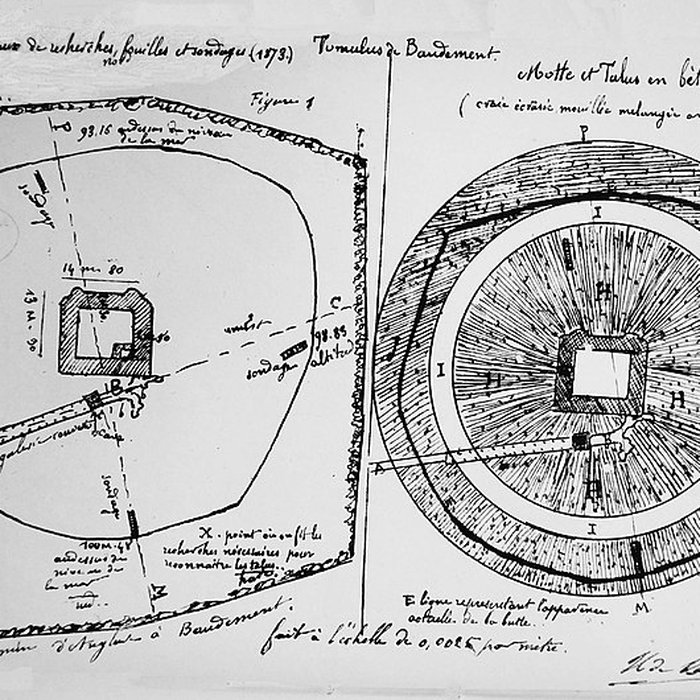 de recherches, fouilles et sondages (1873.)
Tumulus de Baudement.
Motte et Talus en bét
(craie écrasée mouillée mélangée
Figure 1
93.15 audessus du niveau
de la mer
P
I
14 m 80
13 M-90
H
C
98.85
altitude
sondage
B
I
I
H
H
galerie souterraine
A
H
sondage
I
X - point où on fit les
recherches nécessaires pour
reconnaître les talus.
100M.48
audessus du
niveau de
la mer
M
E ligne representant l'apparence
actuelle de la butte.
d'Anglure à Baudement.
fait à l'échelle de 0,0025 par mètre.